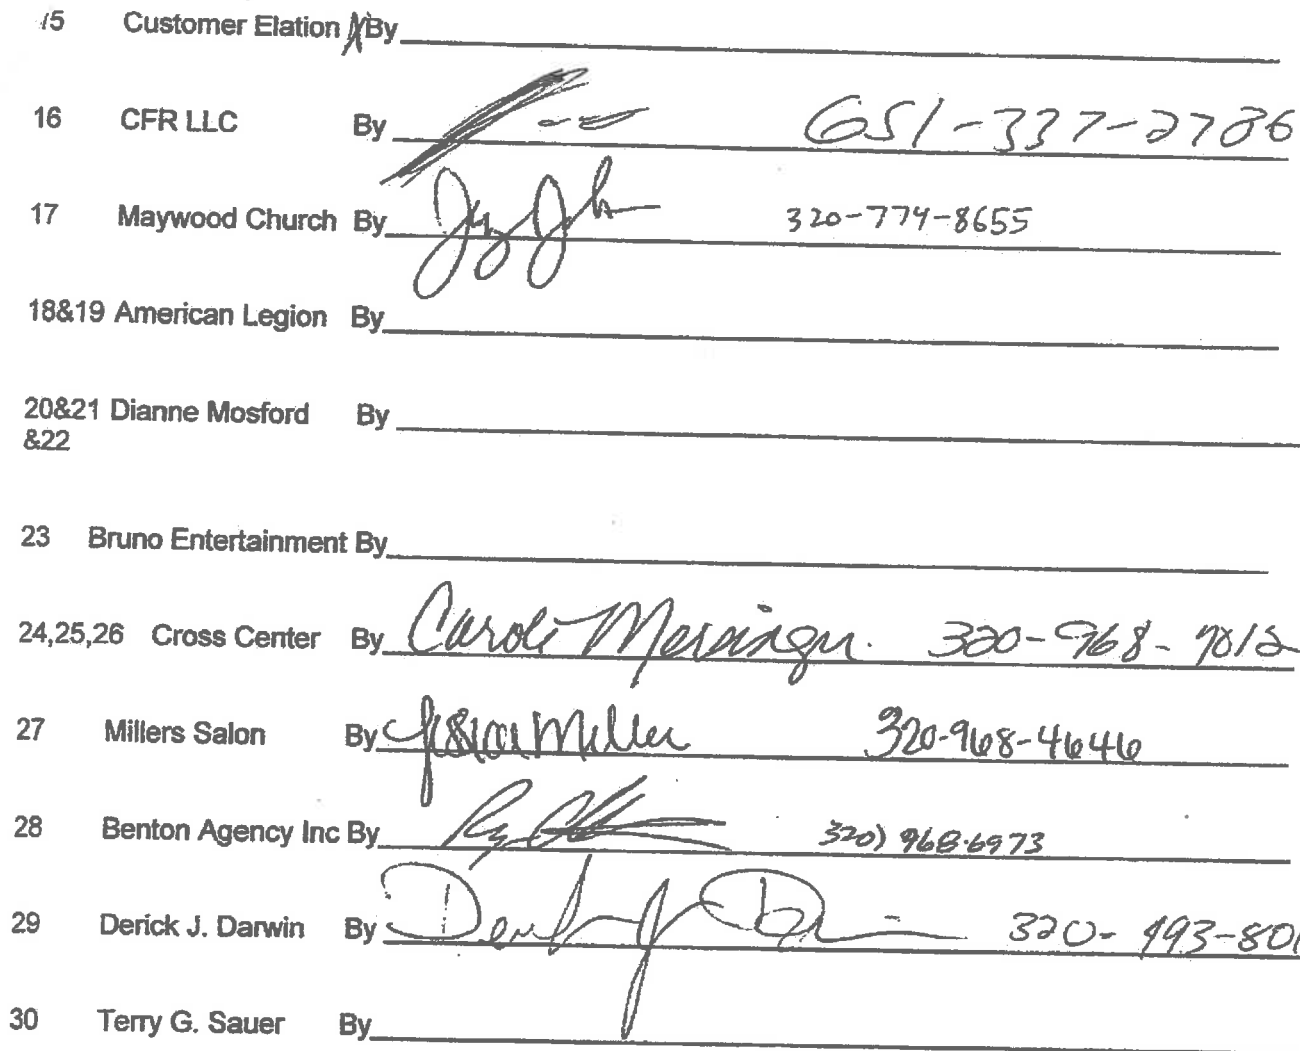 15 Customer Elation By
16 CFR LLC By 651-337-2786
17 Maywood Church By 320-774-8655
18&19 American Legion By
20&21 Dianne Mosford By
&22
23 Bruno Entertainment By
24,25,26 Cross Center By Carole Mersinger 320-968-7012
27 Millers Salon By Jessica Miller 320-968-4646
28 Benton Agency Inc By 320) 968-6973
29 Derick J. Darwin By Derick J D 320-493-80
30 Terry G. Sauer By